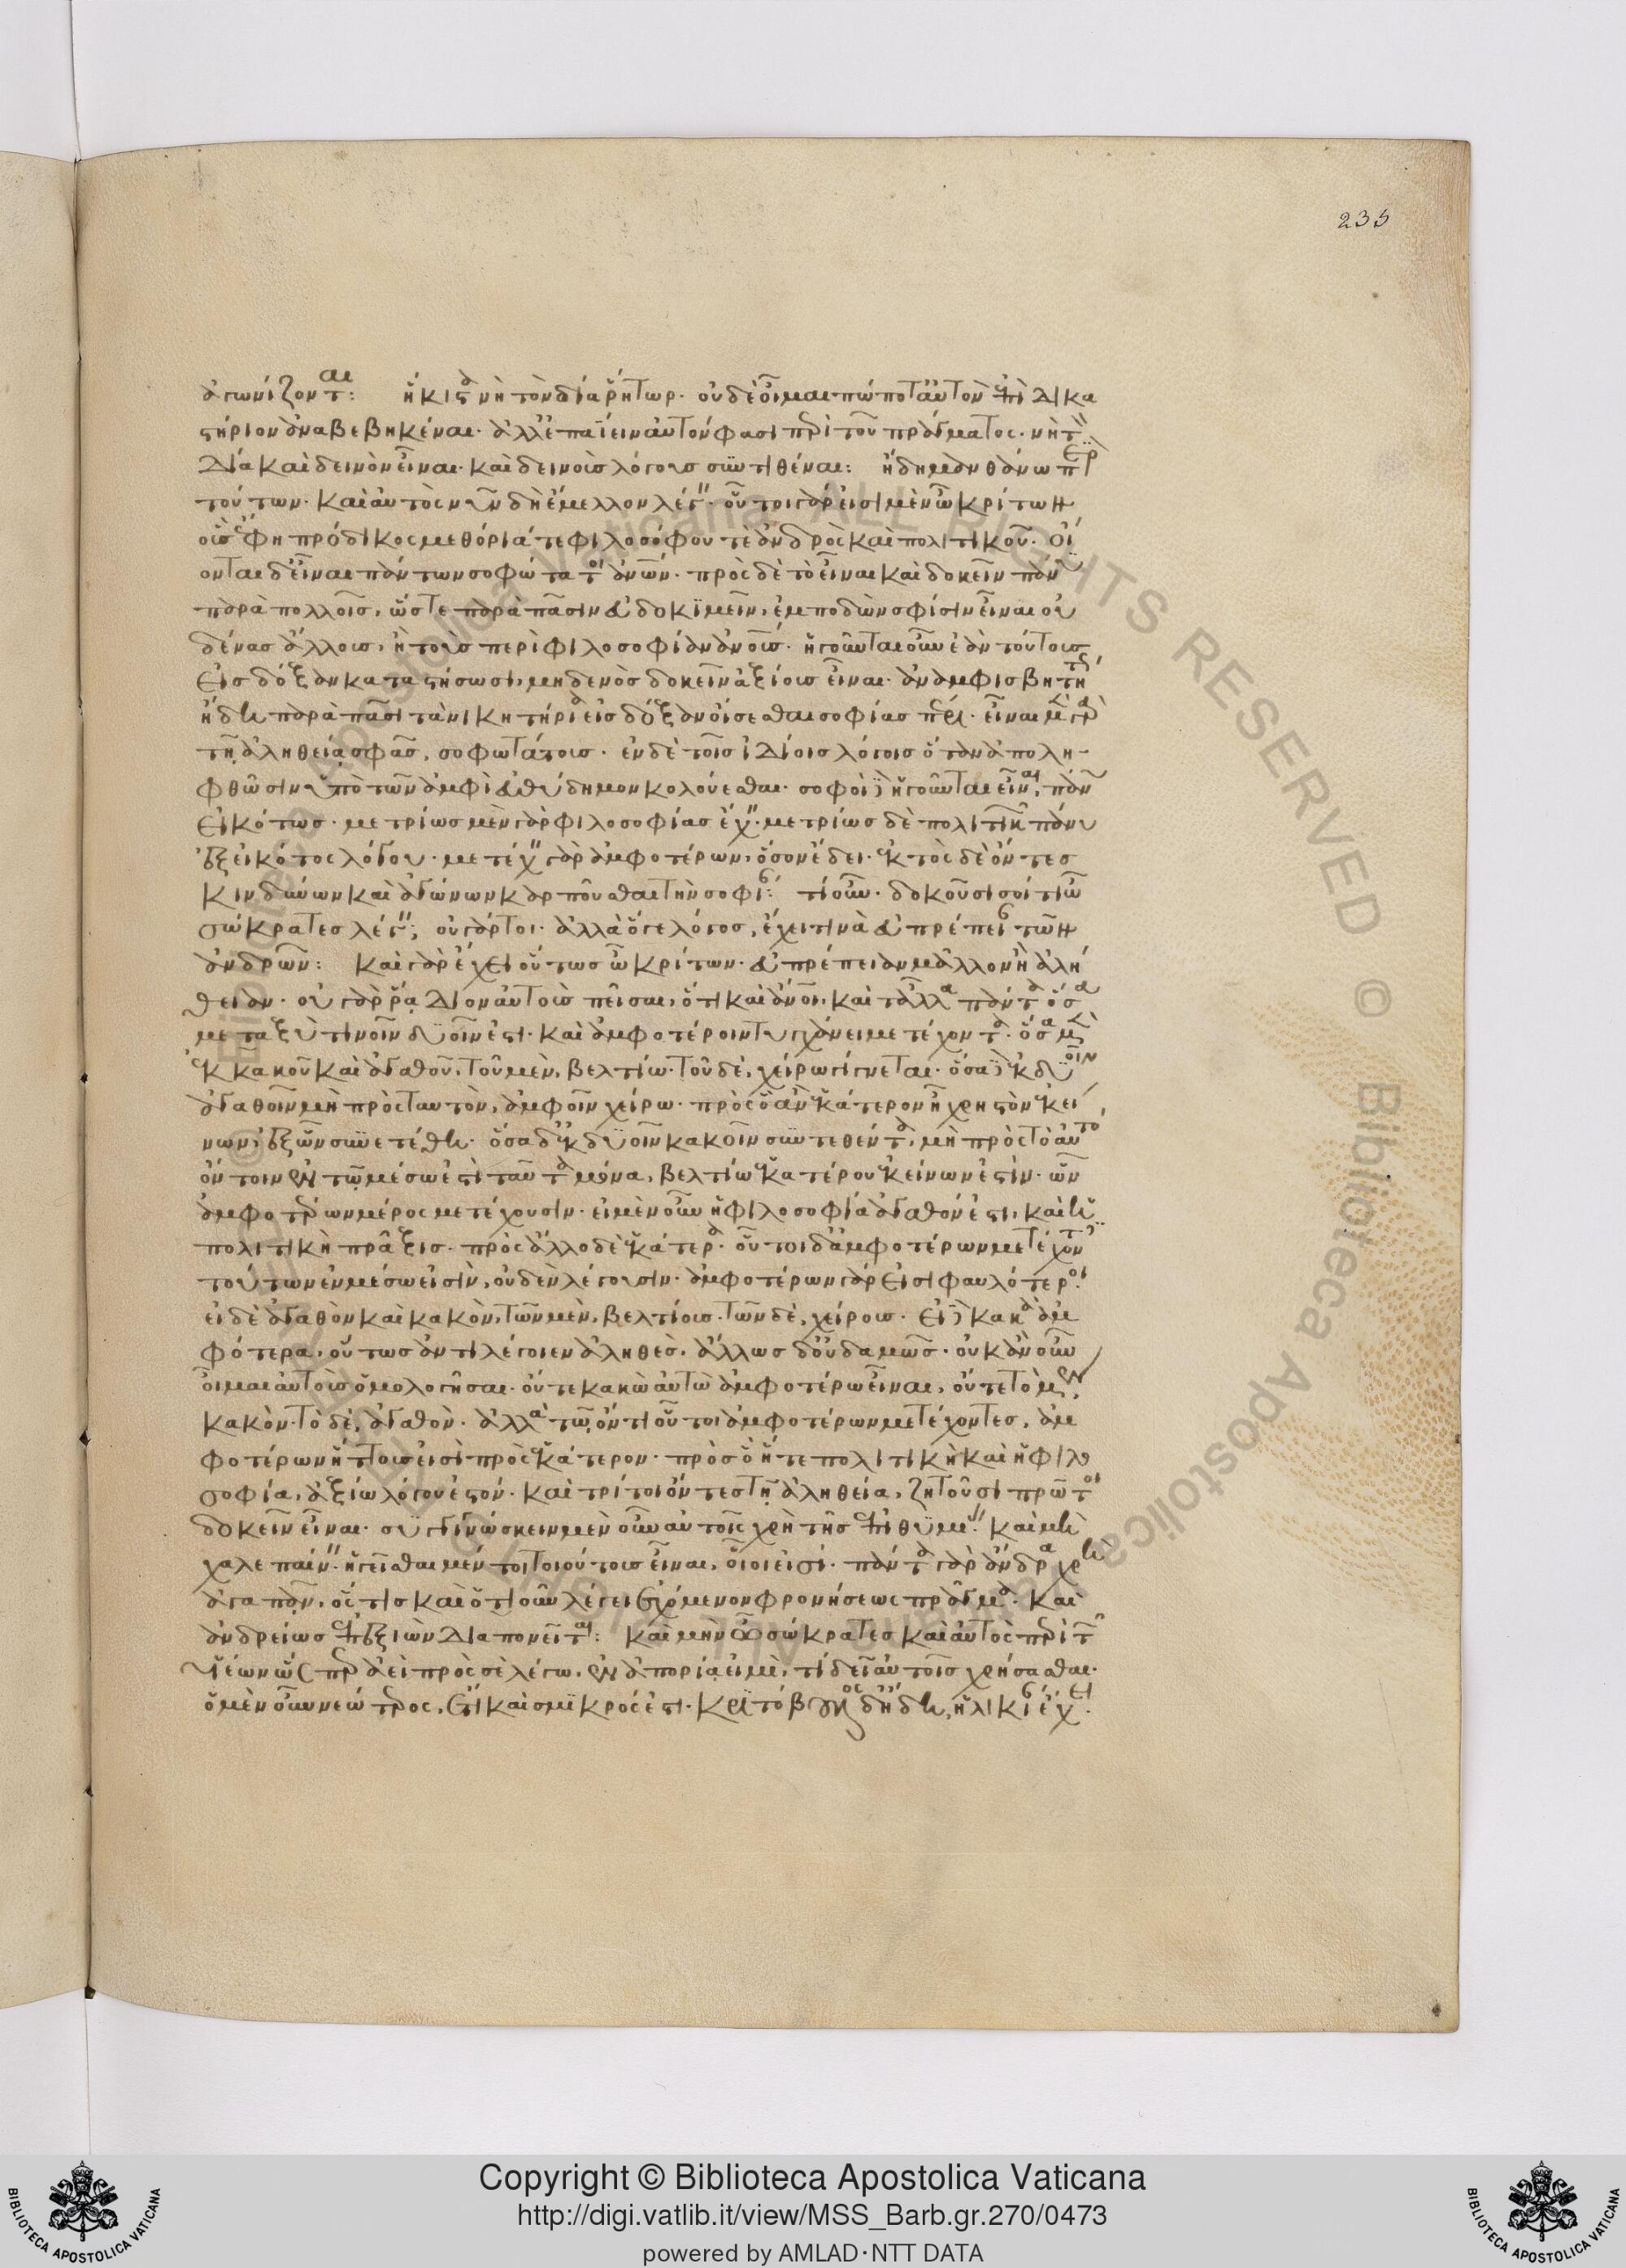 235
ἀγωνίζονται: ἥκιστα νὴ τὸν δία ῥήτωρ· οὐδὲ οἶμαι πώποτ' αὐτὸν ἐπὶ δικα
στήριον ἀναβεβηκέναι· ἀλλ' ἐπαΐειν αὐτόν φασι περὶ τοῦ πράγματος· νὴ τὸν
Δία καὶ δεινὸν εἶναι· καὶ δεινοὺς λόγους συντιθέναι: ἤδη μανθάνω περὶ
τούτων· καὶ αὐτὸς νῦν δὴ ἔμελλον λέγειν· οὗτοι γάρ εἰσι μὲν ὦ κρίτων
οὓς ἔφη πρόδικος μεθόρια τε φιλοσόφου τε ἀνδρὸς καὶ πολιτικοῦ· οἴ
ονται δ' εἶναι πάντων σοφώτατοι ἀνων· πρὸς δὲ τὸ εἶναι καὶ δοκεῖν πάνυ
παρὰ πολλοῖς, ὥστε παρὰ πᾶσιν εὐδοκιμεῖν, ἐμποδὼν σφίσιν εἶναι οὐ
δένας ἄλλους, ἢ τοὺς περὶ φιλοσοφίαν ἀνους· ἡγοῦνται οὖν ἐὰν τούτους
εἰς δόξαν καταστήσωσι, μηδενὸς δοκεῖν ἀξίους εἶναι· ἀναμφισβητήτως
ἤδη παρὰ πᾶσι τὰ νικητήρια εἰς δόξαν οἴσεσθαι σοφίας πέρι· εἶναι μὲν γὰρ
τῇ ἀληθείᾳ σφᾶς, σοφωτάτους· ἐν δὲ τοῖς ἰδίοις λόγοις ὅταν ἀπολη-
φθῶσιν ὑπὸ τῶν ἀμφὶ εὐθύδημον κολούεσθαι· σοφοὶ δὲ ἡγοῦνται εἶναι, πάνυ
εἰκότως· μετρίως μὲν γὰρ φιλοσοφίας ἔχειν· μετρίως δὲ πολιτικῶν πάνυ
ἐξ εἰκότος λόγου· μετέχειν γὰρ ἀμφοτέρων, ὅσον ἔδει· ἐκτὸς δὲ ὄντες
κινδύνων καὶ ἀγώνων καρποῦσθαι τὴν σοφίαν: τί οὖν· δοκοῦσί σοί τι ὦ
σώκρατες λέγειν; οὐ γάρτοι· ἀλλὰ ὅγε λόγος, ἔχει τινὰ εὐπρέπειαν τῶν
ἀνδρῶν: καὶ γὰρ ἔχει οὕτως ὦ κρίτων· εὐπρέπειαν μᾶλλον ἢ ἀλή
θειαν· οὐ γὰρ ῥᾴδιον αὐτοὺς πεῖσαι, ὅτι καὶ ἄνοι, καὶ τἆλλα πάντα ὅσα
μεταξύ τινοιν δυοῖν ἐστι· καὶ ἀμφοτέροιν τυγχάνει μετέχοντα· ὅσα μὲν
ἐκ κακοῦ καὶ ἀγαθοῦ, τοῦ μὲν, βελτίω· τοῦ δὲ, χείρω γίγνεται· ὅσα δὲ ἐκ δυοῖν
ἀγαθοῖν μὴ πρὸς ταυτὸν, ἀμφοῖν χείρω· πρὸς ὃ ἂν ἑκάτερον ᾖ χρηστὸν ἐκεί
νων, ἐξ ὧν συνετέθη· ὅσα δ' ἐκ δυοῖν κακοῖν συντεθέντα, μὴ πρὸς τὸ αὐτὸ
ὄντοιν ἐν τῷ μέσῳ ἐστὶ ταῦτα μόνα, βελτίω ἑκατέρου ἐκείνων ἐστὶν· ὧν
ἀμφοτέρων μέρος μετέχουσιν· εἰ μὲν οὖν ἡ φιλοσοφία ἀγαθόν ἐστι, καὶ ἡ
πολιτικὴ πρᾶξις· πρὸς ἄλλο δὲ ἑκάτερα· οὗτοι δ' ἀμφοτέρων μετέχοντες
τούτων ἐν μέσῳ εἰσὶν, οὐδὲν λέγουσιν· ἀμφοτέρων γάρ εἰσι φαυλότεροι·
εἰ δὲ ἀγαθὸν καὶ κακὸν, τῶν μὲν, βελτίους· τῶν δὲ, χείρους· εἰ δὲ κακὰ ἀμ
φότερα, οὕτως ἄν τι λέγοιεν ἀληθὲς, ἄλλως δ' οὐδαμῶς· οὐκ ἂν οὖν
οἶμαι αὐτοὺς ὁμολογῆσαι· οὔτε κακὼ αὐτὼ ἀμφοτέρω εἶναι, οὔτε τὸ μὲν,
κακὸν· τὸ δὲ, ἀγαθὸν· ἀλλὰ τῷ ὄντι οὗτοι ἀμφοτέρων μετέχοντες, ἀμ
φοτέρων ἥττους εἰσὶ πρὸς ἑκάτερον· πρὸς ὃ ἥ τε πολιτικὴ καὶ ἡ φιλο
σοφία, ἀξίω λόγου ἐστόν· καὶ τρίτοι ὄντες τῇ ἀληθείᾳ, ζητοῦσι πρῶτοι
δοκεῖν εἶναι· συγγινώσκειν μὲν οὖν αὐτοῖς χρὴ τῆς ἐπιθυμίας· καὶ μὴ
χαλεπαίνειν· ἡγεῖσθαι μέν τοι τοιούτους εἶναι, οἷοι εἰσί· πάντα γὰρ ἄνδρα χρὴ
ἀγαπᾶν, ὅς τις καὶ ὁτιοῦν λέγει ἐχόμενον φρονήσεως πρᾶγμα· καὶ
ἀνδρείως ἐπεξιὼν διαπονεῖται: καὶ μὴν ὦ σώκρατες καὶ αὐτὸς περὶ τῶν
υἱέων ὥσπερ ἀεὶ πρὸς σὲ λέγω, ἐν ἀπορίᾳ εἰμὶ, τί δεῖ αὐτοῖς χρήσασθαι·
ὁ μὲν οὖν νεώτερος, ἔτι καὶ σμικρός ἐστι· κριτόβουλος δ' ἤδη, ἡλικίαν ἔχει·
Copyright © Biblioteca Apostolica Vaticana
http://digi.vatlib.it/view/MSS_Barb.gr.270/0473
powered by AMLAD·NTT DATA